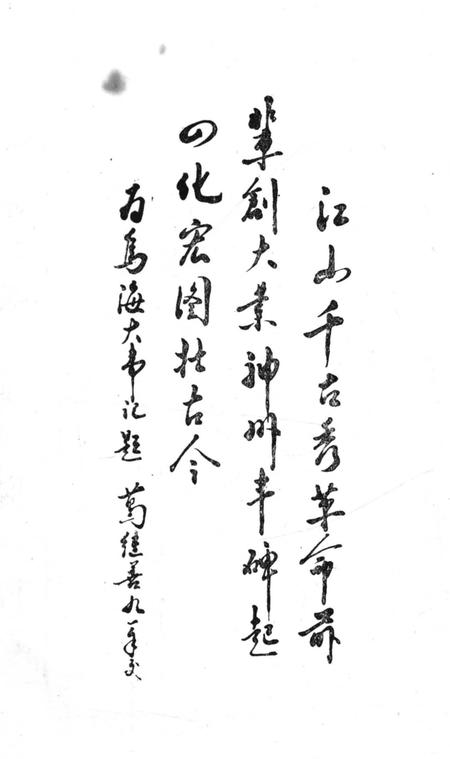 江山千古秀革命前
辈创大业神州丰碑起
四化宏图壮古今
为乌海大事记题 葛继善九一年